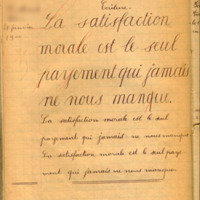 Écriture
La satisfaction
morale est le seul
payement qui jamais
ne nous manque.
La satisfaction morale est le seul
payement qui jamais ne nous manque
La satisfaction morale est le seul
payement qui jamais ne nous manque